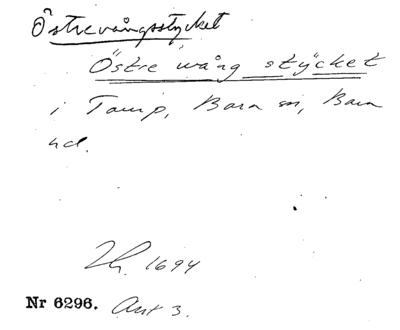 Östrevångsstycket
Östre wång stÿcket
i Tamp, Bara sn, Bara
hd.
Lh. 1694
Nr 6296. Ant 3.